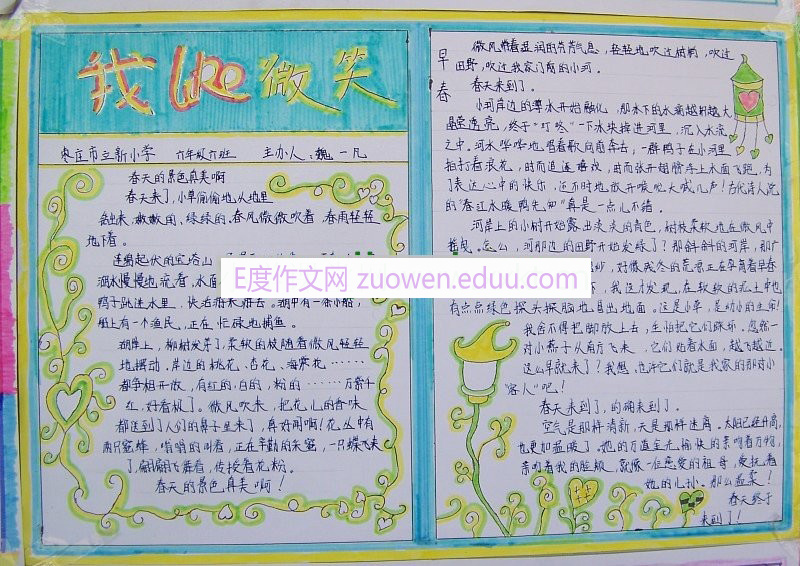 我 like 微笑
枣庄市立新小学 六年级六班 主办人：魏一凡
春天的景色真美啊
春天来了，小草偷偷地从地里
钻出来，嫩嫩的，绿绿的，春风微微吹着，春雨轻轻
地下着。
连绵起伏的宝塔山
湖水慢慢地流着，水面
鸭子跳进水里，快活游来游去。湖中有一条小船，
船上有一个渔民，正在忙碌地捕鱼。
湖岸上，柳树发芽了，柔软的枝随着微风轻轻
地摆动。岸边的桃花、杏花、海棠花……
都争相开放，有红的、白的、粉的……万紫千
红，好看极了。微风吹来，把花儿的香味
都送到了人们的鼻子里来了，真好闻啊！花丛中有
两只蜜蜂，嗡嗡的叫着，正在辛勤的采蜜，一只蝶飞来
了，翩翩飞舞着，传授着花粉。
春天的景色真美啊！
E度作文网 zuowen.eduu.com
早春
微风带着湿润的芳芳气息，轻轻地吹过树梢，吹过
田野，吹过我家门前的小河。
春天来到了。
小河岸边的薄冰开始融化，那冰下的水滴越积越大
晶莹透亮，终于“叮咚”一下冰块掉进河里，沉入水流
之中。河水哗哗地唱着歌向前奔去，一群鸭子在小河里
拍打着浪花，时而追逐嬉戏，时而张开翅膀浮上水面飞跑，为
了表达心中的快乐，还不时地放开喉咙大喊几声！古代诗人说
的“春江水暖鸭先知”真是一点儿不错。
河岸上的小树开始露出淡淡的青色，树枝柔软地在微风中
摇曳。怎么，河那边的田野开始发绿了？那斜斜的河岸，那广
好像残冬的荒凉正在孕育着早春
下，我这才发现，在软软的泥土中也
有点点绿色探头探脑地冒出地面。这是小草，是幼小的生命！
我舍不得把脚放上去，生怕把它们踩坏。忽然一
对小燕子从南方飞来，它们贴着水面，越飞越近。
这么早就来了？我想，也许它们就是我家的那对小
“客人”吧！
春天来到了，的确来到了。
空气是那样清新，天是那样迷离。太阳已经升高，
也更加温暖了。她的万道金光愉快的亲吻着万物，
亲吻着我的脸颊，就像一位慈爱的祖母，爱抚着
她的儿孙。那么温柔！
春天终于
来到了！